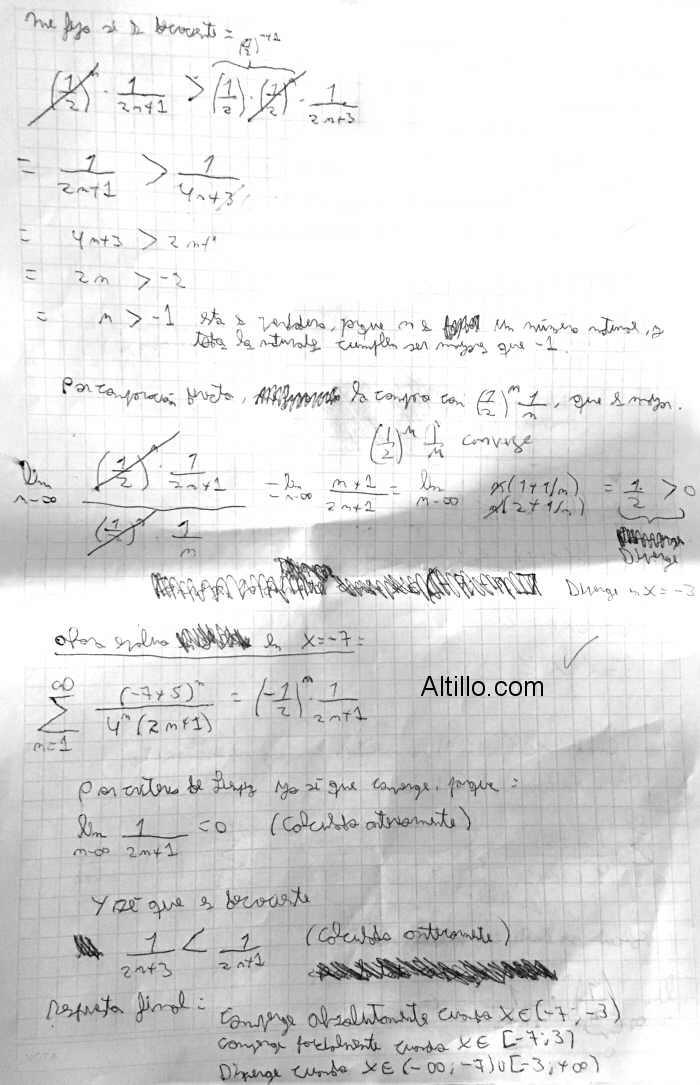 me fijo si es decreciente =
(1/2)^n+1
(1/2)^n · 1/(2n+1) > (1/2) · (1/2)^n · 1/(2n+3)
= 1/(2n+1) > 1/(4n+3)
= 4n+3 > 2n+1
= 2n > -2
= n > -1 esta es verdadera, porque n es un número natural, y
todos los naturales cumplen ser mayores que -1.
Por comparación directa, la comparo con (1/2)^n 1/n, que es mayor.
(1/2)^n 1/n converge
lim n→∞ ((1/2)^n · 1/(2n+1)) / ((1/2)^n · 1/n) = lim n→∞ (n+1)/(2n+1) = lim n→∞ n(1+1/n)/n(2+1/n) = 1/2 > 0
Diverge
Diverge en x = -3
Ahora en x = -7 =
∑ n=1 ∞ (-7+5)^n / 4^n (2n+1) = (-1/2)^n · 1/(2n+1)
Altillo.com
Por criterio de se que converge, porque :
lim n→∞ 1/(2n+1) = 0 (calculado anteriormente)
Y sé que es decreciente
1/(2n+3) < 1/(2n+1) (calculado anteriormente)
Respuesta final : Converge absolutamente cuando x ∈ (-7 ; -3)
Converge cuando x ∈ [-7 ; 3)
Diverge cuando x ∈ (-∞ ; -7) ∪ [-3 ; +∞)